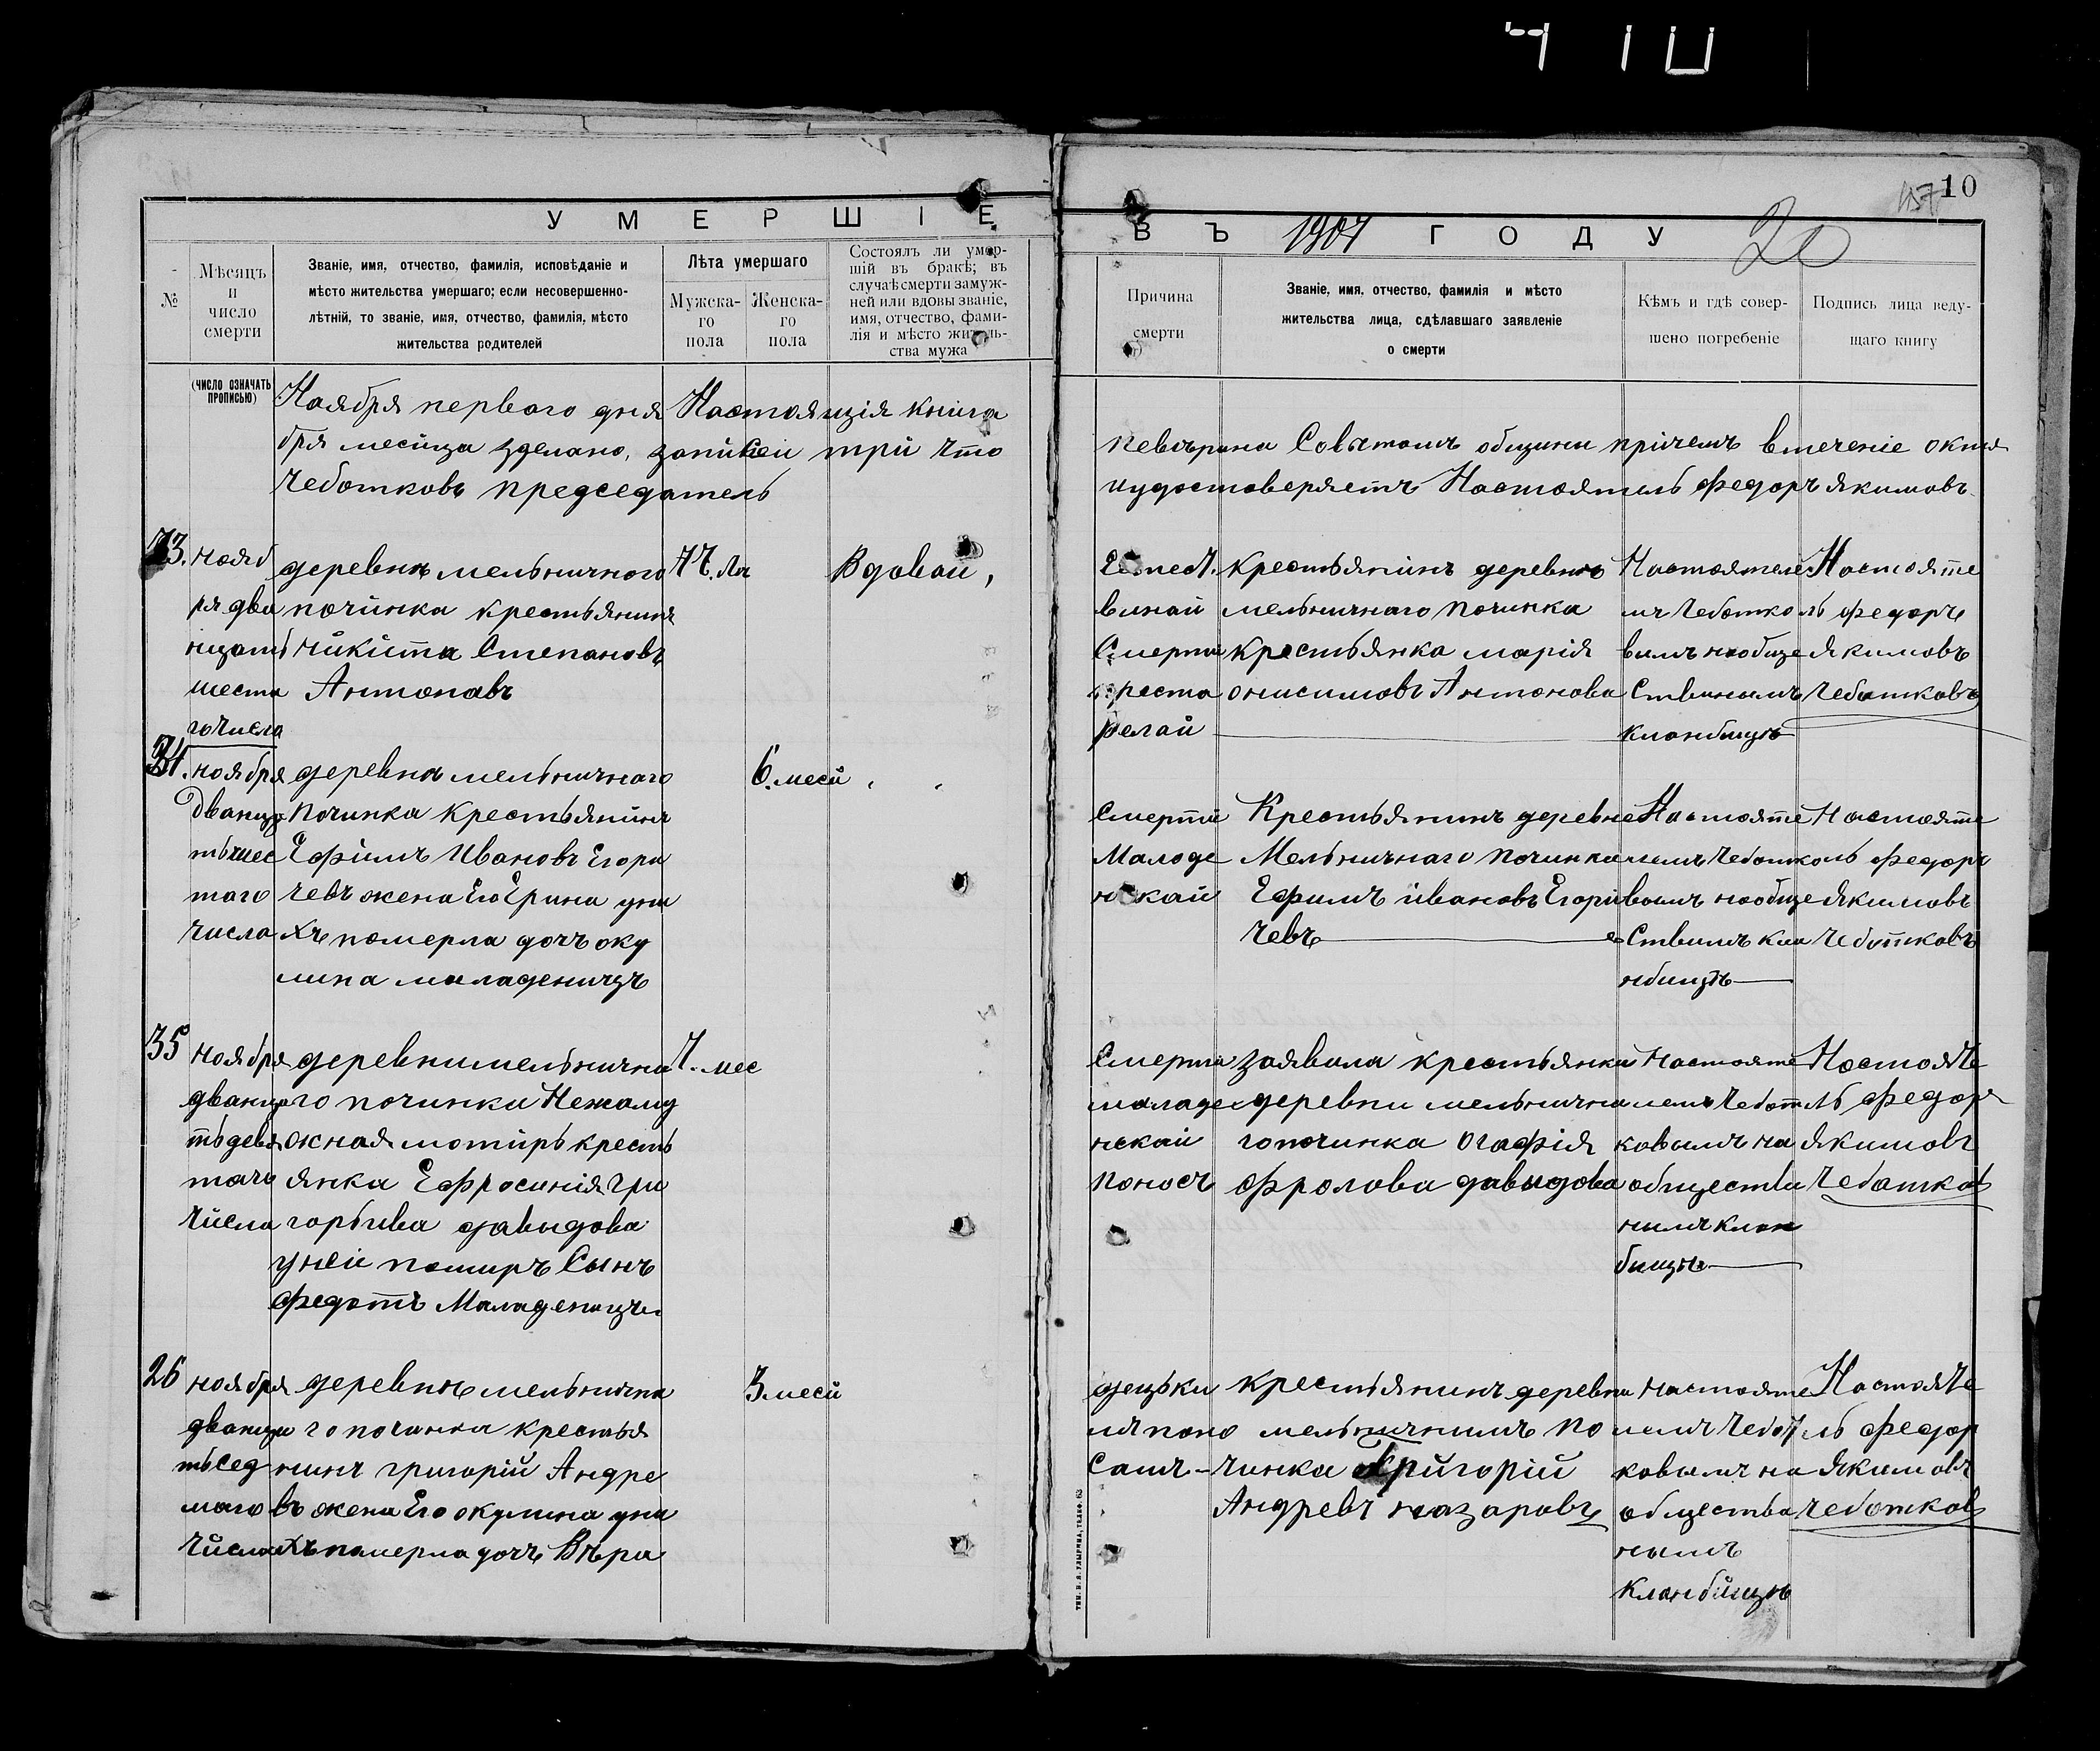 УМЕРШІЕ
ВЪ 1907 ГОДУ
10
20
№
Мѣсяцъ
и
число
смерти
Званіе, имя, отчество, фамилія, исповѣданіе и
мѣсто жительства умершаго; если несовершенно-
лѣтній, то званіе, имя, отчество, фамилія, мѣсто
жительства родителей
Лѣта умершаго
Мужска-
го
пола
Женска-
го
пола
Состоялъ ли умер-
шій въ бракѣ; въ
случаѣ смерти замуж-
ней или вдовы званіе,
имя, отчество, фами-
лія и мѣсто житель-
ства мужа
Причина
смерти
Званіе, имя, отчество, фамилія и мѣсто
жительства лица, сдѣлавшаго заявленіе
о смерти
Кѣмъ и гдѣ совер-
шено погребеніе
Подпись лица веду-
щаго книгу
(ЧИСЛО ОЗНАЧАТЬ
ПРОПИСЬЮ)
Ноября первого дня Настоящія книга
бря месица зделано, записеи три что
Чеботковъ председатель
певѣрина Совѣтомъ общины причемъ втеченіе октя
иудостоверяетъ Настоятиль Федоръ Якимовъ
33.
нояб
ря два
нцать
шеста
гочисла
деревнѣ мельничного
починка крестьянинъ
никита Степановъ
Антонавъ
Вдовои,
винай
Смерти
преста
релай
крестьянинъ деревню
мельничнаго починка
крестьянка марія
онисимовъ Антонова
Настоятеле
мъ Чеботко
вимъ наобще
Ствинымъ
кланбищѣ
Настояте
ль федоръ
Якимовъ
Чебатковъ
34.
ноября
Дванца
тьшес
таго
числа
деревна мельничнаго
починка крестьянинъ
Ефимъ Ивановъ Егори
чевъ жена Его Ерина уни
хъ померла дочъ оку
лина маладеницъ
6. меси
Смерти
Малоде
нской
Крестьянинъ деревне
Мельничнаго починка
Ефимъ ивановъ Егори
чевъ
Настояте
лемъ Чеботко
вымъ наобще
Ствимъ кла
нбищъ
Настояте
ль федоръ
Якимовъ
Чеботковъ
35
ноября
дванца
тьдевя
таго
Числа
деревнимельнична
го починки Незаму
жная мотирь кресть
янка Ефросинія гри
горьива давыдова
унеи помиръ Сынъ
федотъ Маладеницъ
7. мес
Смерти
маладе
нскай
поносъ
заявила крестьянки
деревни мельнична
гопочинка Огафія
Фролова давыдова
Настояте
лемъ Чебот
ковымъ на
обществи
нимъ клан
бищъ
Настояте
ль Федор
Якимовъ
Чеботков
26
ноября
дванца
тьсед
маго
Числа
деревнѣ мельнична
го починка крестья
нинъ григорій Андре
въ жена Его окулина уни
хъ памерла дочъ Вѣра
3 меси
крестьянинъ деревни
мельничнимъ по
чинка Григорій
Андревъ назаровъ
Настояте
лемъ Чебот
ковымъ на
общества
нымъ
Кланбищѣ
Настояте
ль федор
Якимовъ
Чеботков